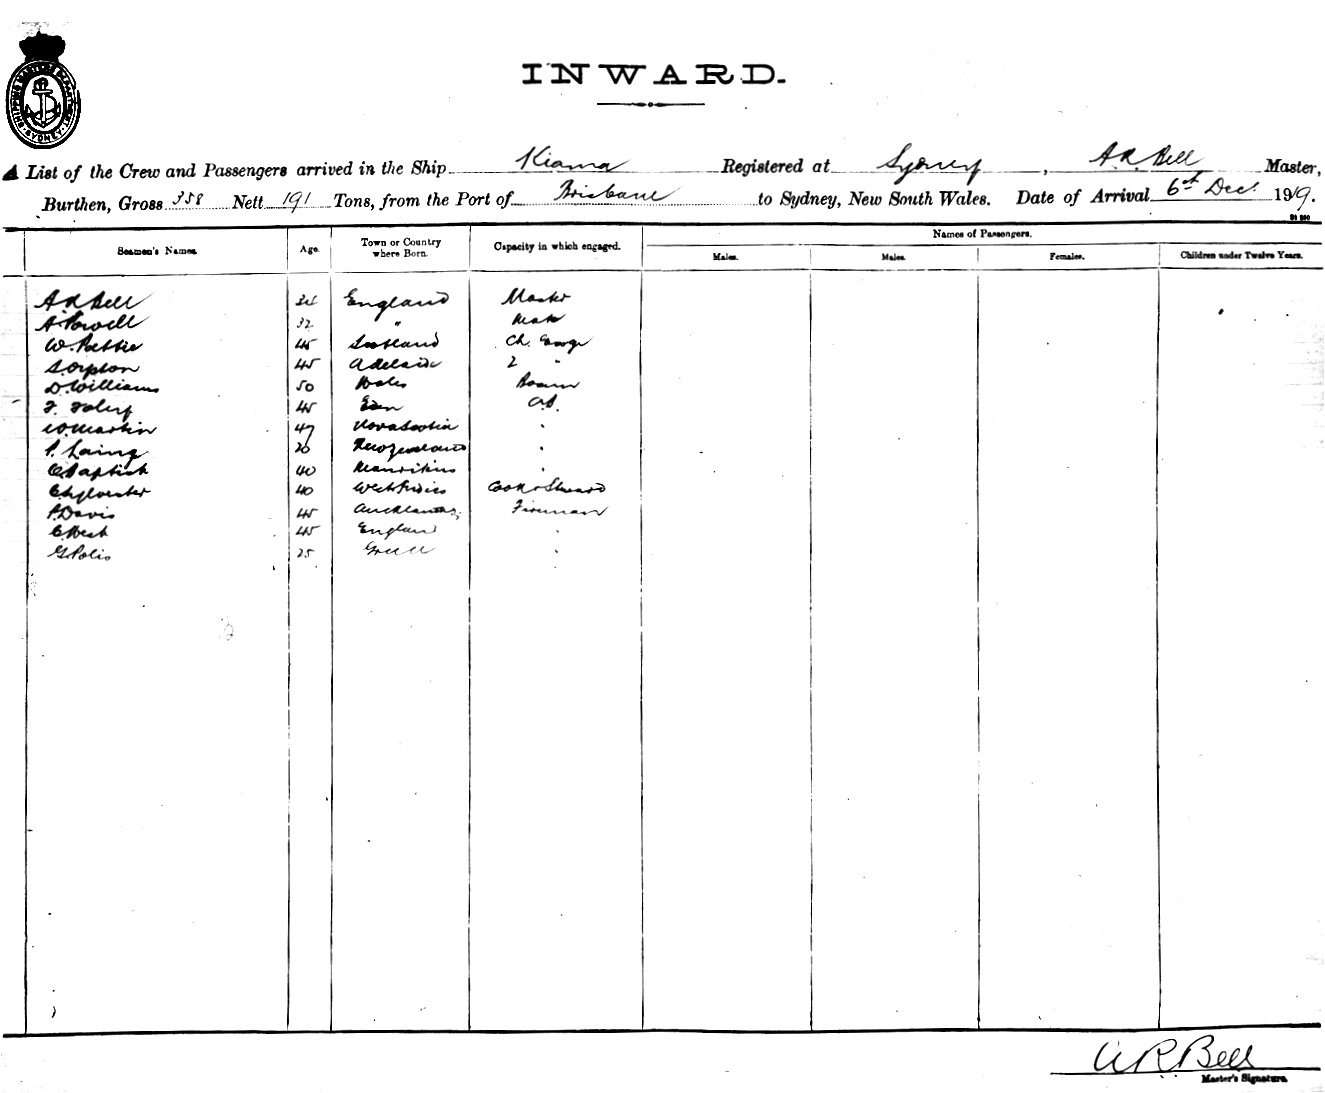 SHIPPING MASTER'S DEPARTMENT
SYDNEY
INWARD.
A List of the Crew and Passengers arrived in the Ship Kiama Registered at Sydney, A R Bell Master,
Burthen, Gross 358 Nett 191 Tons, from the Port of Brisbane to Sydney, New South Wales. Date of Arrival 6th Dec. 1919.
Names of Passengers.
Seamen's Names. Age. Town or Country where Born. Capacity in which engaged. Males. Males. Females. Children under Twelve Years.
A R Bell 34 England Master
A. Powell 32 " Mate
W. Pattie 45 Scotland Ch. Eng
45 Adelaide 2 "
D. Williams 50 Wales Bosun
F. 45 Eden AB.
W. Martin 47 Nova Scotia "
P. Laing 20 New Zealand "
C Baptist 40 Mauritius "
C Sylvester 40 West Indies Cook & Steward
P. Davis 45 Auckland Fireman
C West 45 England "
G Polis 25 Greece "
A R Bell
Master's Signature.